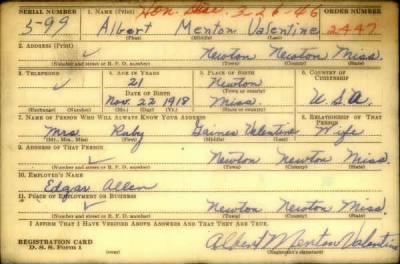 SERIAL NUMBER 1. NAME (Print) Hon. Disc. 3-26-46 ORDER NUMBER
S-99 Albert Menton Valentine 2447
(First) (Middle) (Last)
2. ADDRESS (Print)
✓ Newton Newton Miss.
(Number and street or R. F. D. number) (Town) (County) (State)
3. TELEPHONE 4. AGE IN YEARS 5. PLACE OF BIRTH 6. COUNTRY OF CITIZENSHIP
✓ 21 Newton
DATE OF BIRTH (Town or county)
Nov. 22 1918 Miss. U.S.A.
(Exchange) (Number) (Mo.) (Day) (Yr.) (State or country)
7. NAME OF PERSON WHO WILL ALWAYS KNOW YOUR ADDRESS 8. RELATIONSHIP OF THAT PERSON
Mrs. Ruby Gaines Valentine Wife
(Mr., Mrs., Miss) (First) (Middle) (Last)
9. ADDRESS OF THAT PERSON
✓ Newton Newton Miss.
(Number and street or R. F. D. number) (Town) (County) (State)
10. EMPLOYER'S NAME
Edgar Allen
11. PLACE OF EMPLOYMENT OR BUSINESS
✓ Newton Newton Miss.
(Number and street or R. F. D. number) (Town) (County) (State)
I AFFIRM THAT I HAVE VERIFIED ABOVE ANSWERS AND THAT THEY ARE TRUE.
REGISTRATION CARD
D. S. S. Form 1 (over) Albert Menton Valentine
(Registrant's signature)